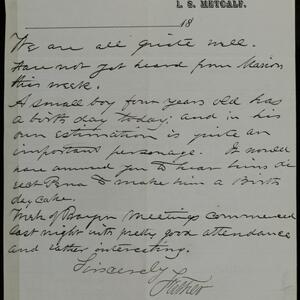 L. S. METCALF.
18
We are all quite well.
Have not yet heard from Marion
this week.
A small boy four years old has
a birth day today; and in his
own estimation is quite an
important personage. It would
have amused you to hear him di
rect Rena to make him a Birth
day cake.
Week of Prayer Meetings commenced
last night with pretty good attendance
and rather interesting.
Sincerely
Father